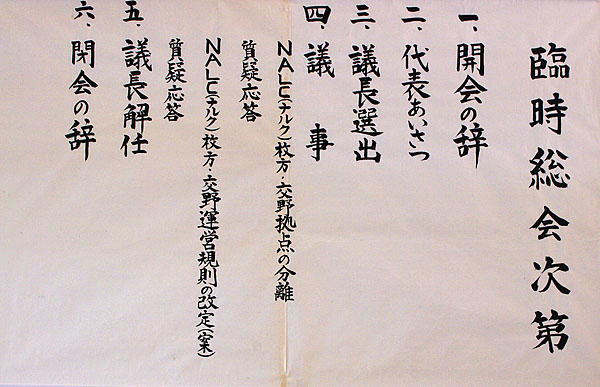 臨時総会次第
一、開会の辞
二、代表あいさつ
三、議長選出
四、議事
NALC(ナルク)枚方・交野拠点の分離
質疑応答
NALC(ナルク)枚方・交野運営規則の改定(案)
質疑応答
五、議長解任
六、閉会の辞